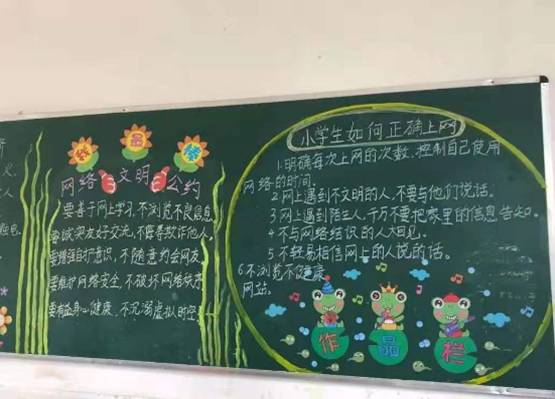 网络文明公约
要善于网上学习,不浏览不良信息,
要诚实友好交流,不侮辱欺诈他人,
要增强自护意识,不随意约会网友,
要维护网络安全,不破坏网络秩序,
要有益身心健康,不沉溺虚拟时空。
小学生如何正确上网
1.明确每次上网的次数,控制自己使用
网络的时间
2.网上遇到不文明的人,不要与他们说话。
3.网上遇到陌生人,千万不要把家里的信息告知。
4.不与网络结识的人相见。
5.不轻易相信网上的人说的话。
6.不浏览不健康
网站。
作品栏